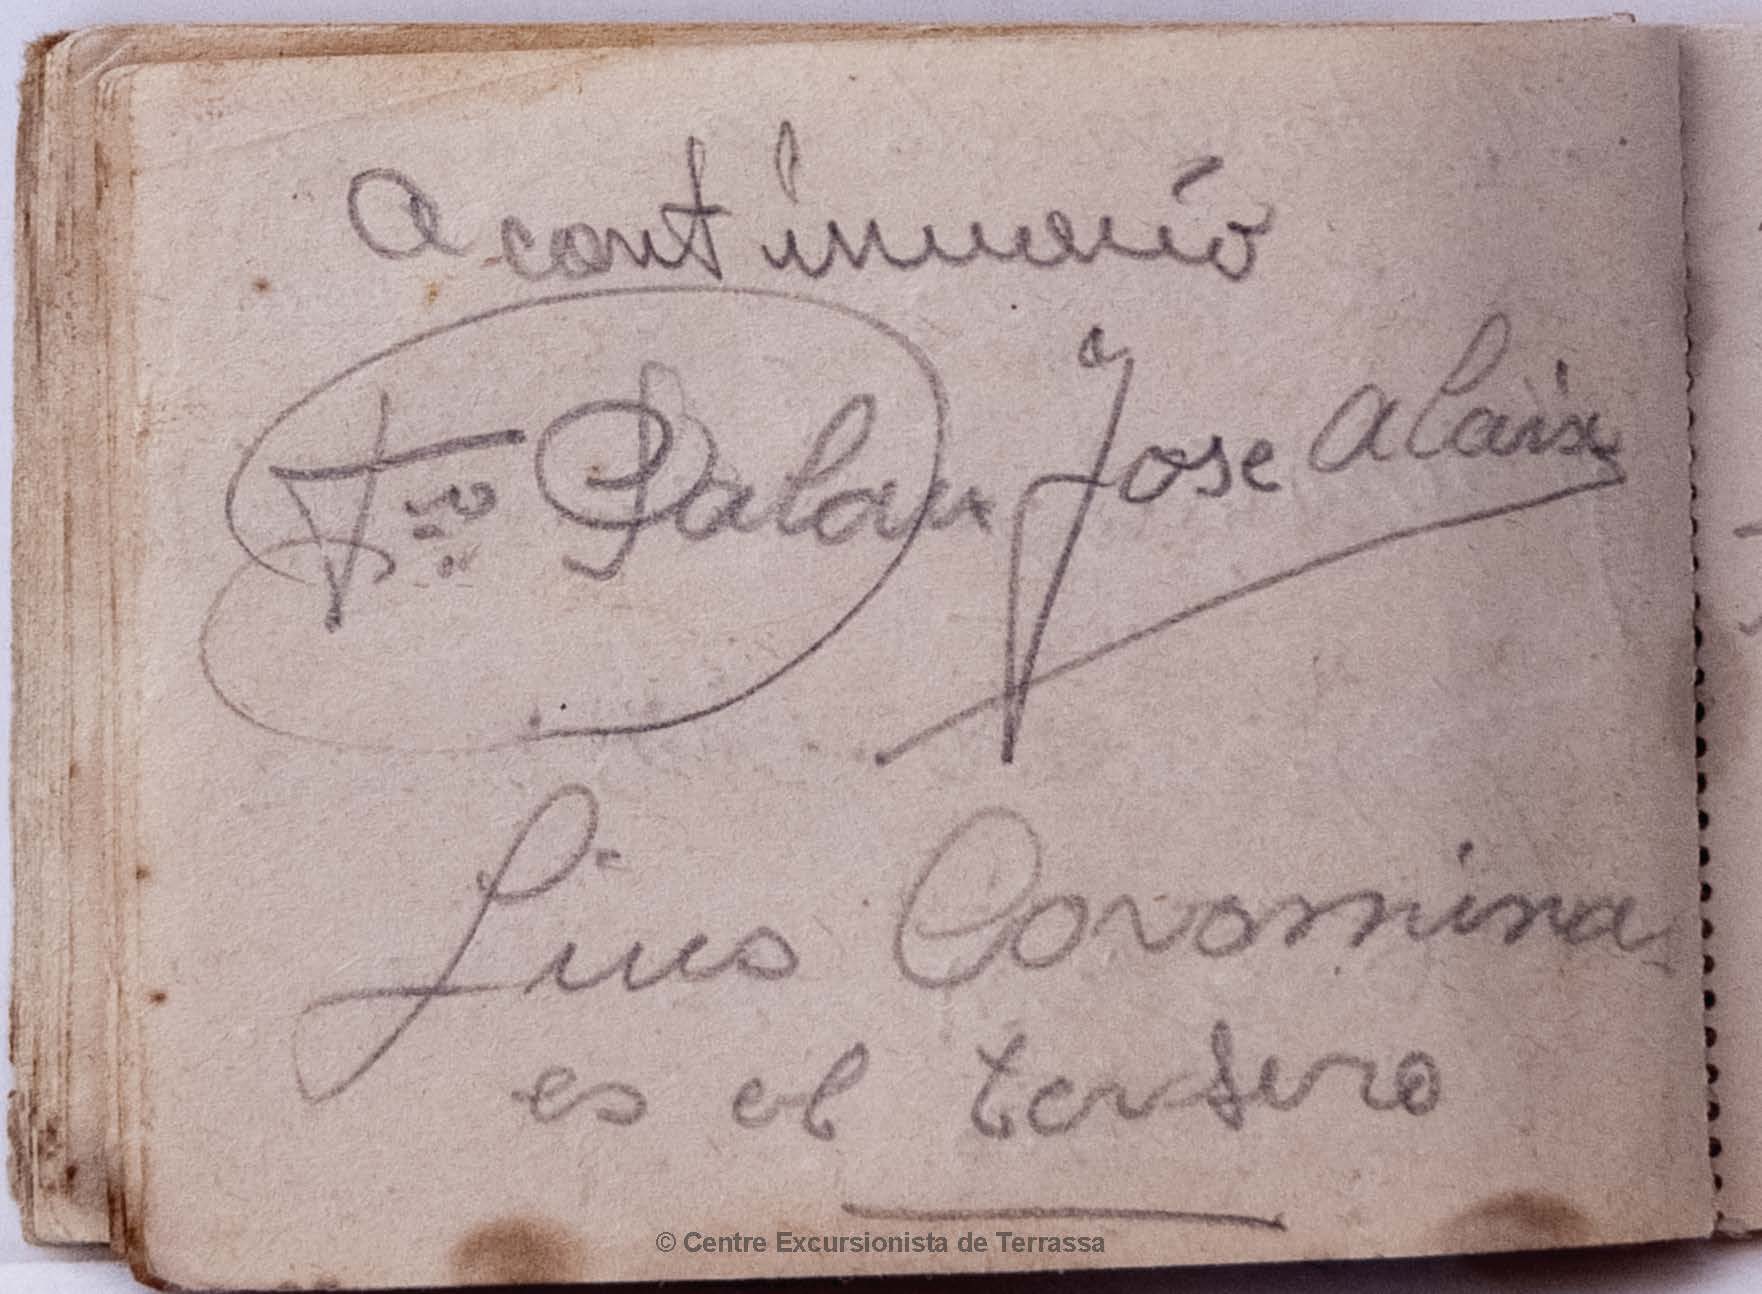 a continuacio
Fco Palau José Alaix
Luis Coromina
es el tersero
© Centre Excursionista de Terrassa